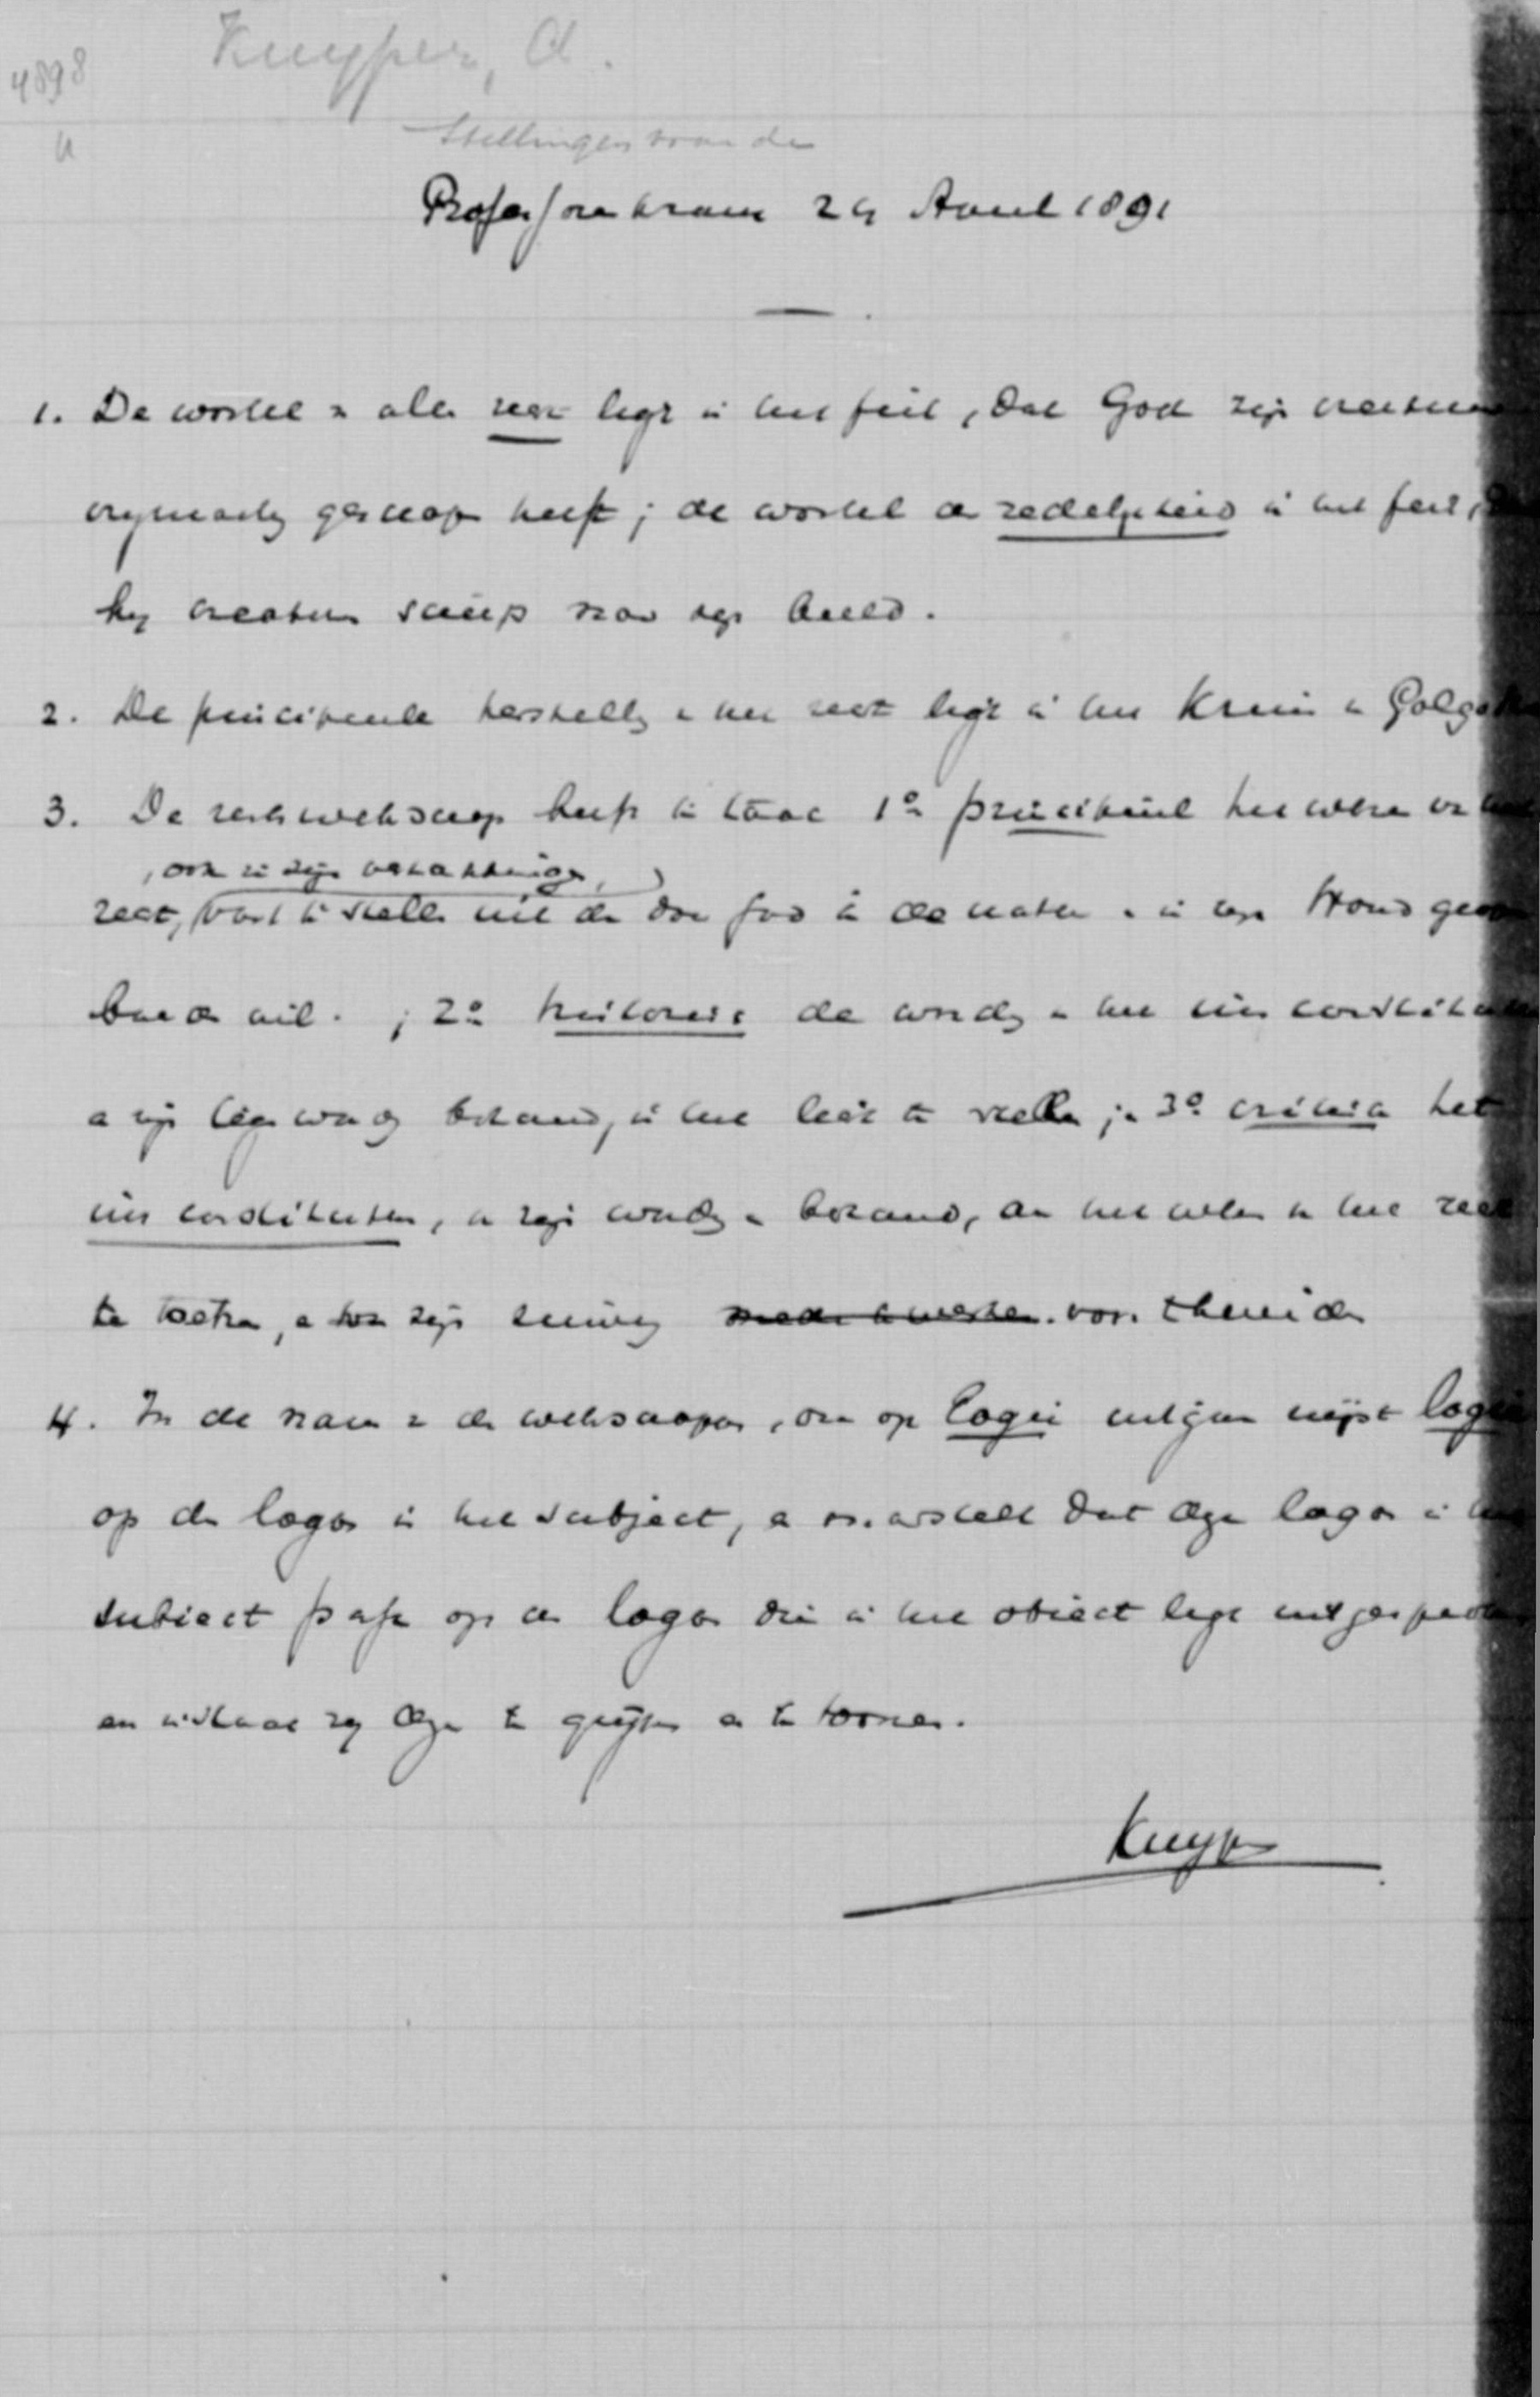 Kuyper, A.
4898
Stellingen voor den
Professorenkrans 24 April 1891
1. De wortel v alle recht ligt i het feit, dat God zijn creaturen
organisch geschapen heeft; de wortel der zedelijkheid i het feit,
hij creaturen schiep naar zijn beeld.
2. De principieele herstelling v het recht ligt i het Kruis v Golgotha
3. De rechtswetenschap heeft tot taak 1º principieel het wezen v het
, ook in zijn vertakkingen,
recht, vast te stellen uit de door God i de natuur en i zijn Woord geopen
baarde wil; 2º historisch de wording v het ius constitutum
en zijn tegenwoordig bestand, i het licht te stellen; en 3º critisch het
ius constitutum, in zijn wording en bestand, aan het wezen v het recht
te toetsen, en tot zijn zuivering voor te bereiden
4. In de naam v de wetenschappen, die op logie uitgaan wijst logie
op de logos i het subject, en onderstelt dat deze logos i het
subject past op de logos die i het object ligt uitgesproken
en in staat is deze te grijpen en te toonen.
Kuyper